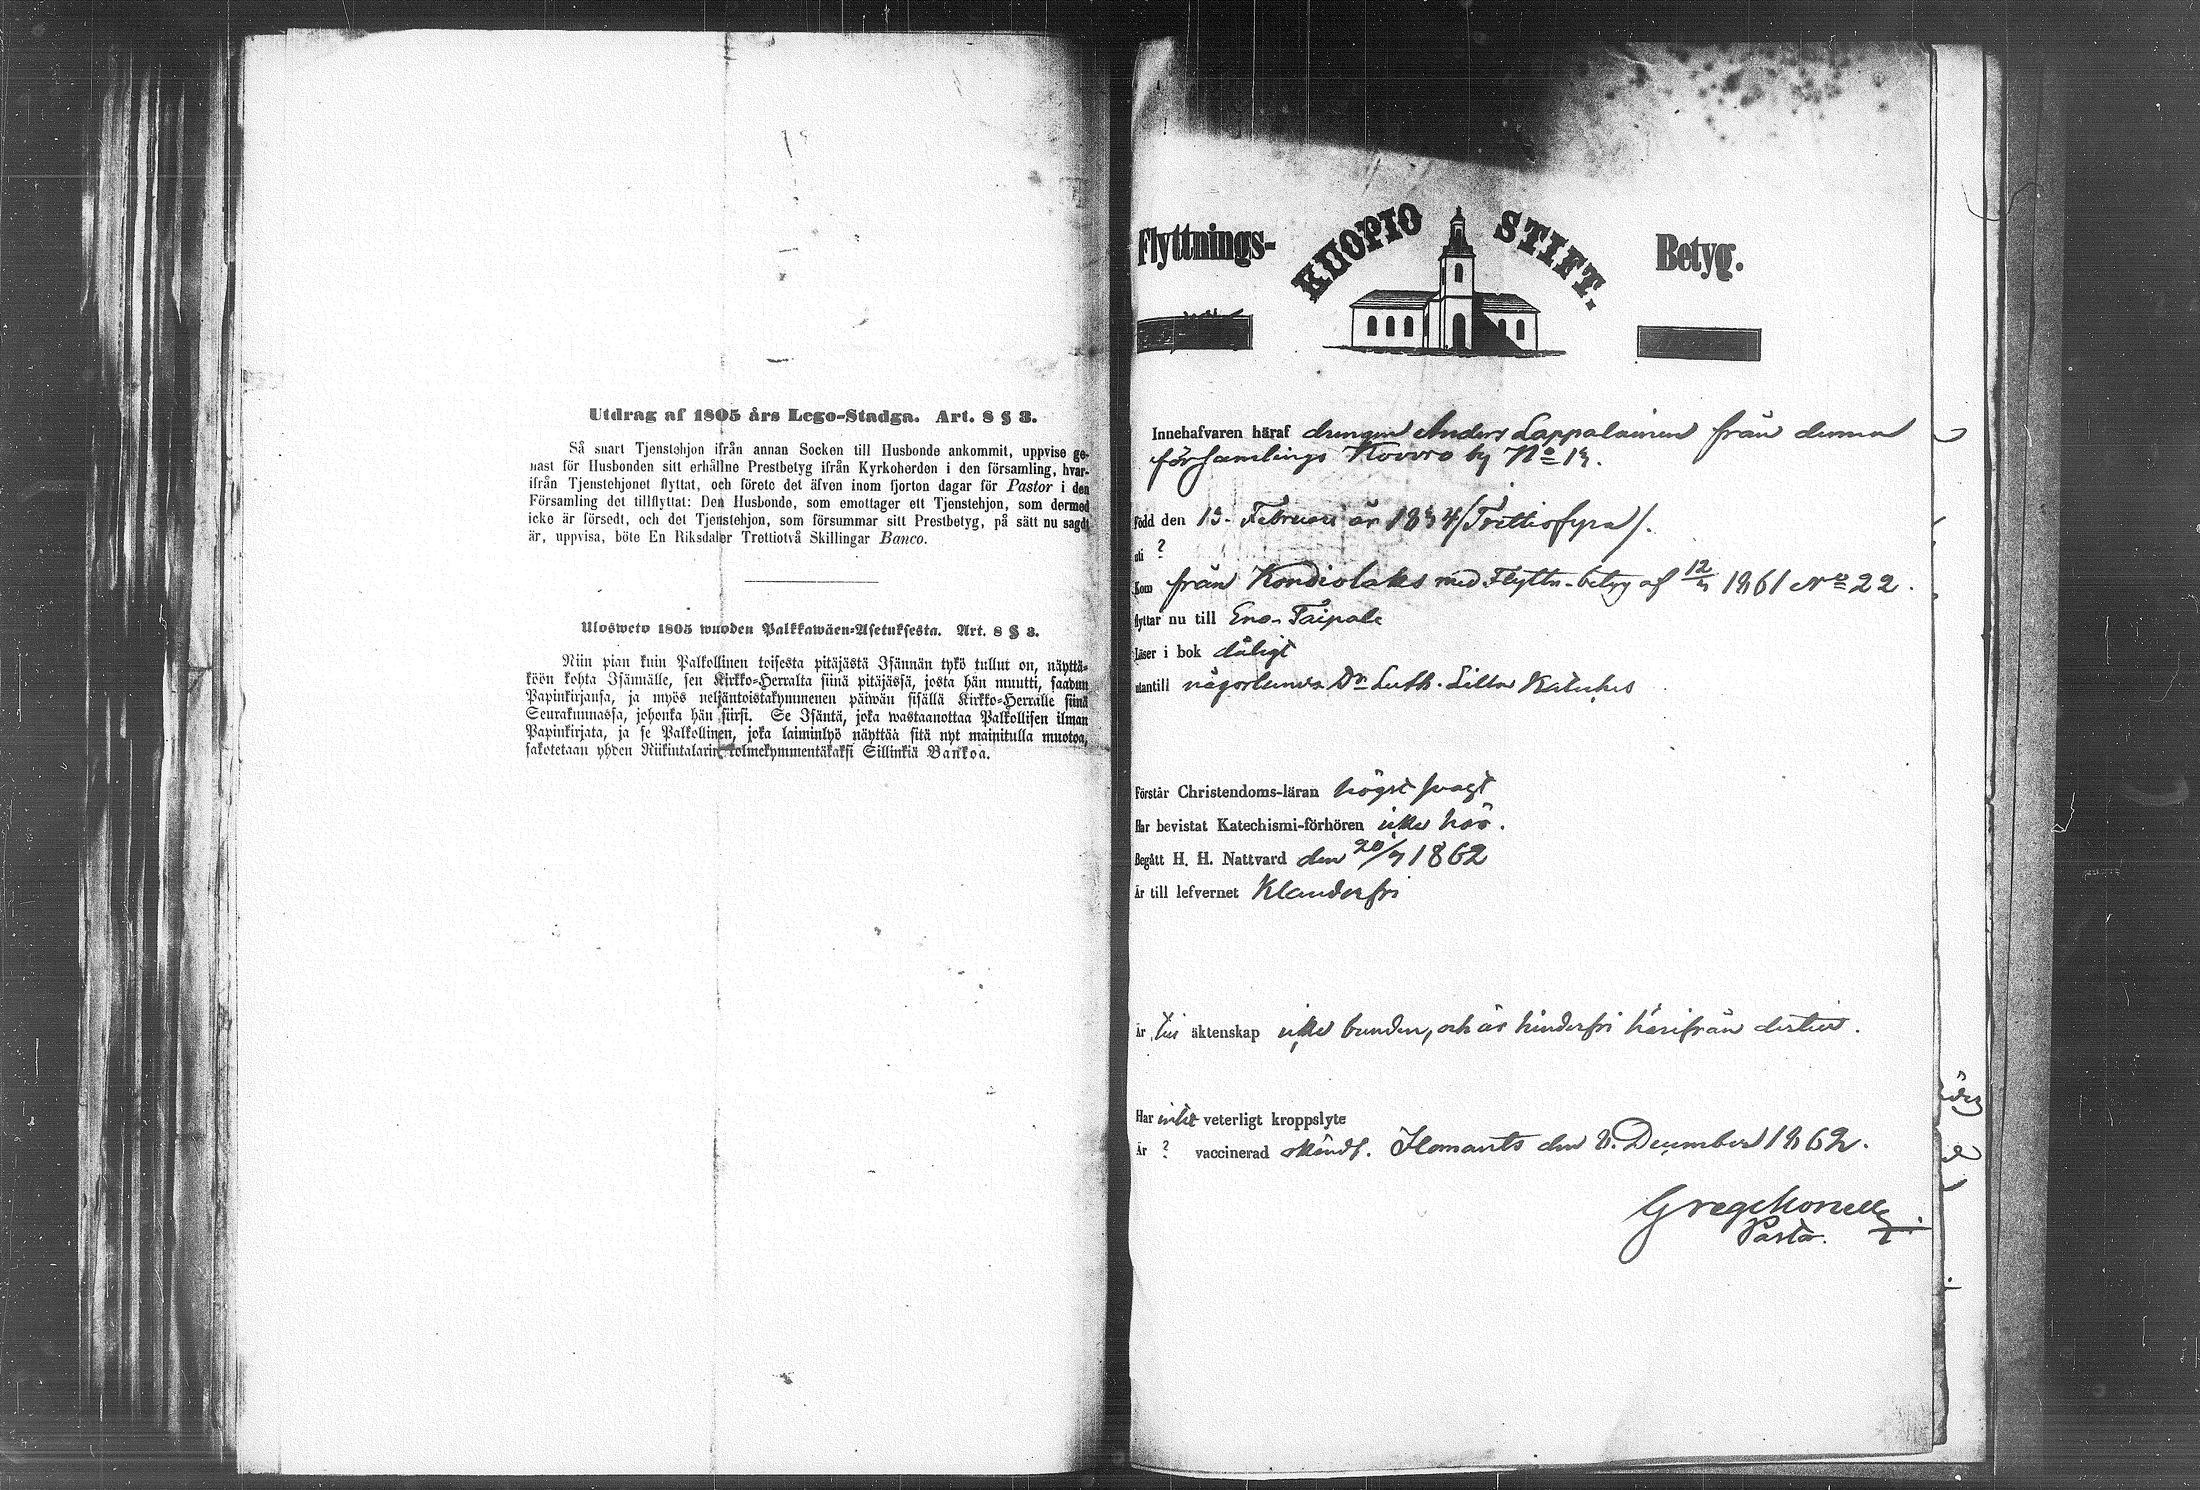 Utdrag af 1805 års Lego-Stadga. Art. 8 § 3.
Så snart Tjenstehjon ifrån annan Socken till Husbonde ankommit, uppvise ge-
nast för Husbonden sitt erhållne Prestbetyg ifrån Kyrkoherden i den församling, hvar-
ifrån Tjenstehjonet flyttat, och förete det äfven inom fjorton dagar för Pastor i den
Församling det tillflyttat: Den Husbonde, som emottager ett Tjenstehjon, som dermed
icke är försedt, och det Tjenstehjon, som försummar sitt Prestbetyg, på sätt nu sagdt
är, uppvisa, böte En Riksdaler Trettiotvå Skillingar Banco.
Ulosweto 1805 wuoden Palkkawäen-Asetuksesta. Art. 8 § 3.
Niin pian kuin Palkollinen toisesta pitäjästä Isännän tykö tullut on, näyttä-
köön kohta Isännälle, sen Kirkko-Herralta siinä pitäjässä, josta hän muutti, saadun
Papinkirjansa, ja myös neljäntoistakymmenen päiwän sisällä Kirkko-Herralle siinä
Seurakunnassa, johonka hän siirsi. Se Isäntä, joka wastaanottaa Palkollisen ilman
Papinkirjata, ja se Palkollinen, joka laiminlyö näyttää sitä nyt mainitulla muotoa,
sakotetaan yhden Riikintalarin kolmekymmentäkaksi Sillinkiä Bankoa.
Flyttnings- KUOPIO STIFT. Betyg.
Innehafvaren häraf drengen Anders Lappalainen från denna
församlings Kovero by No 13.
född den 13. Februari år 1834 /Trettiofyra/.
uti ?
Kom från Kondiolaks med Flyttn.betyg af 12/4 1861 No 22.
flyttar nu till Eno-Taipale
Läser i bok dåligt
utantill någorlunda Dr Luth. Lilla Kateches
Förstår Christendoms-läran högst svagt
Har bevistat Katechismi-förhören icke här.
Begått H. H. Nattvard den 20/7 1862
Är till lefvernet Klanderfri
Är till äktenskap icke bunden, och är hinderfri härifrån dertill.
Har intet veterligt kroppslyte
Är ? vaccinerad Ilomants den 8. December 1862.
Pastor.